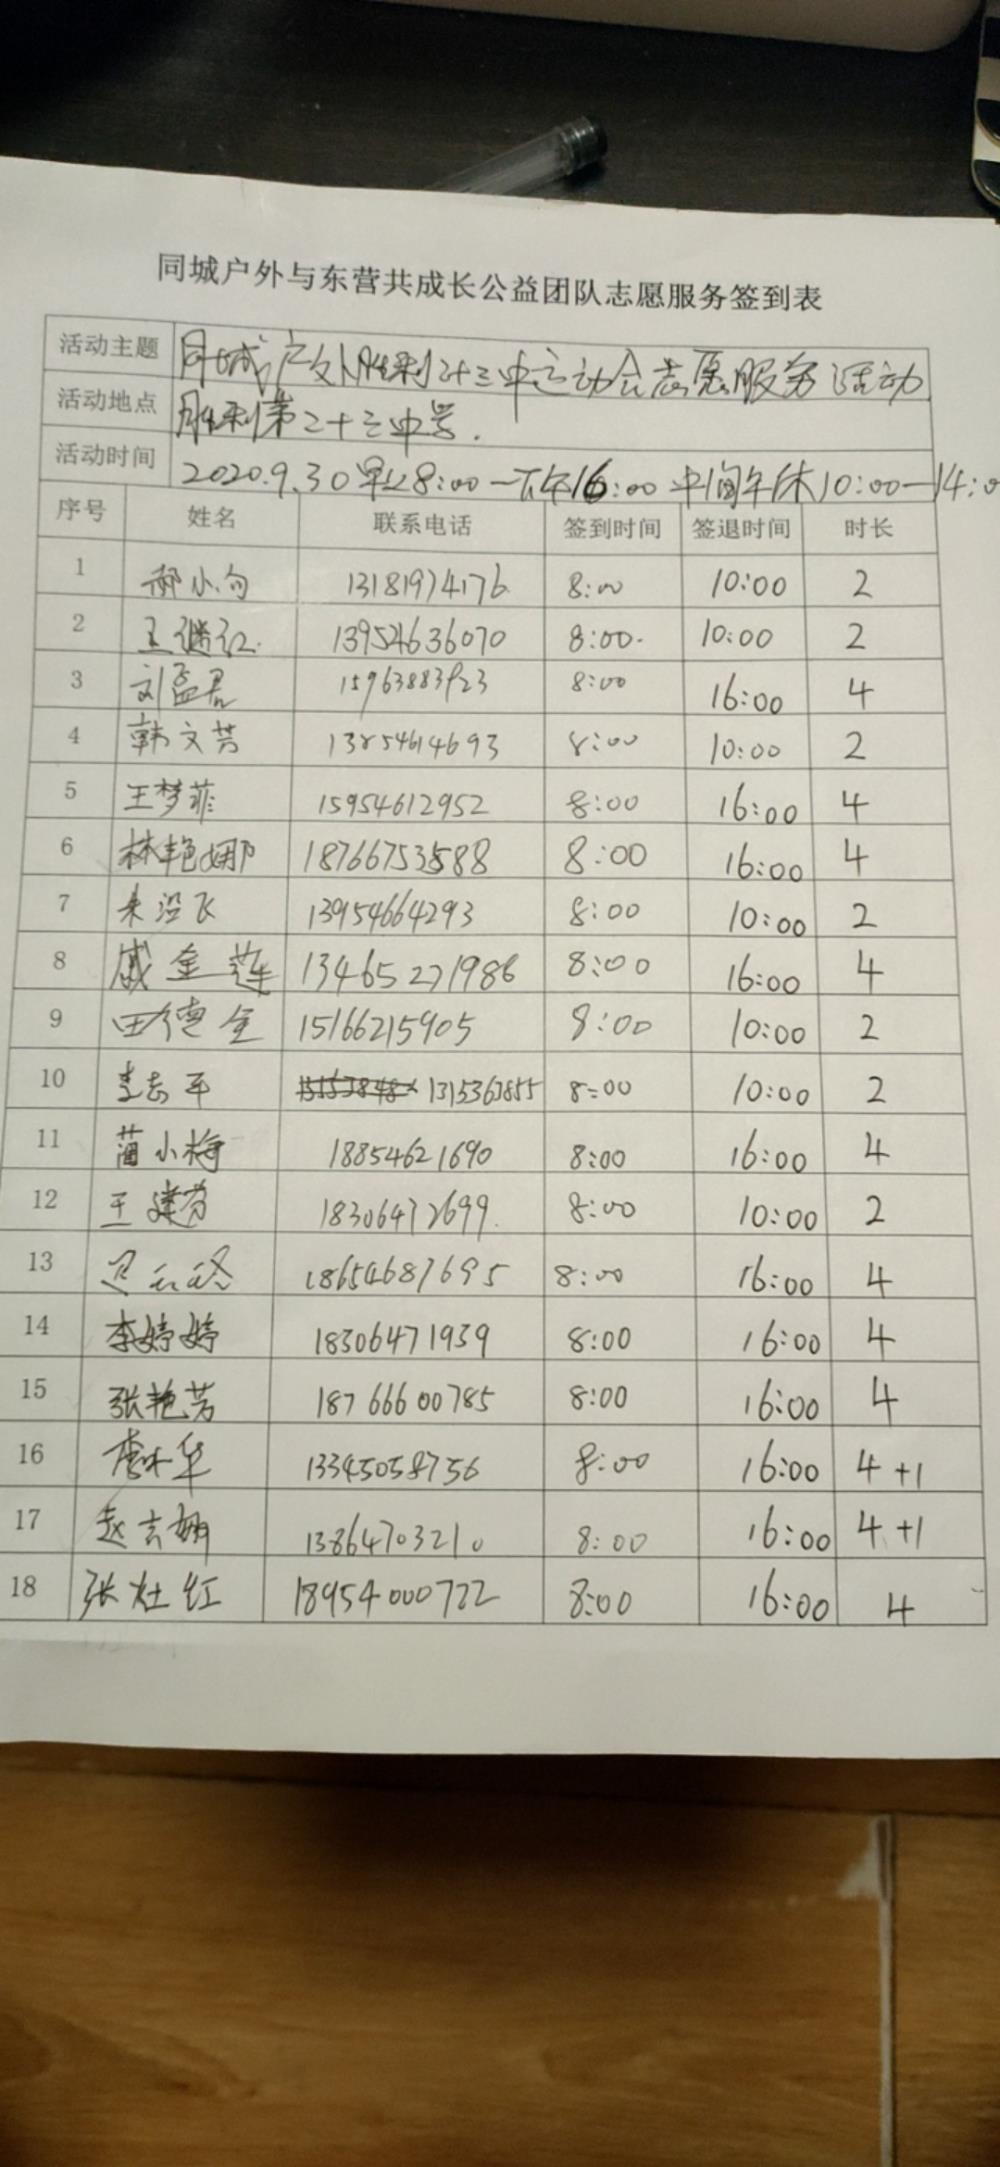 同城户外与东营共成长公益团队志愿服务签到表
活动主题 同城户外胜利二十三中运动会志愿服务活动
活动地点 胜利第二十三中学.
活动时间 2020.9.30早上8:00—下午16:00 中间午休10:00—14:0
序号 姓名 联系电话 签到时间 签退时间 时长
1 郝小句 13181974176 8:00 10:00 2
2 王继红 13954636070 8:00 10:00 2
3 刘孟君 8:00 16:00 4
4 韩文芳 13854614693 8:00 10:00 2
5 王梦菲 15954612952 8:00 16:00 4
6 林艳娜 18766753588 8:00 16:00 4
7 13954664293 8:00 10:00 2
8 戚金莲 13465271986 8:00 16:00 4
9 田德全 15166215905 8:00 10:00 2
10 李志平 1315363855 8:00 10:00 2
11 蒲小梅 18854621690 8:00 16:00 4
12 王建芬 18306472699 8:00 10:00 2
13 18654687695 8:00 16:00 4
14 李婷婷 18306471939 8:00 16:00 4
15 张艳芳 18766600785 8:00 16:00 4
16 13345058756 8:00 16:00 4+1
17 赵吉娜 13864703210 8:00 16:00 4+1
18 张灶红 18954000722 8:00 16:00 4